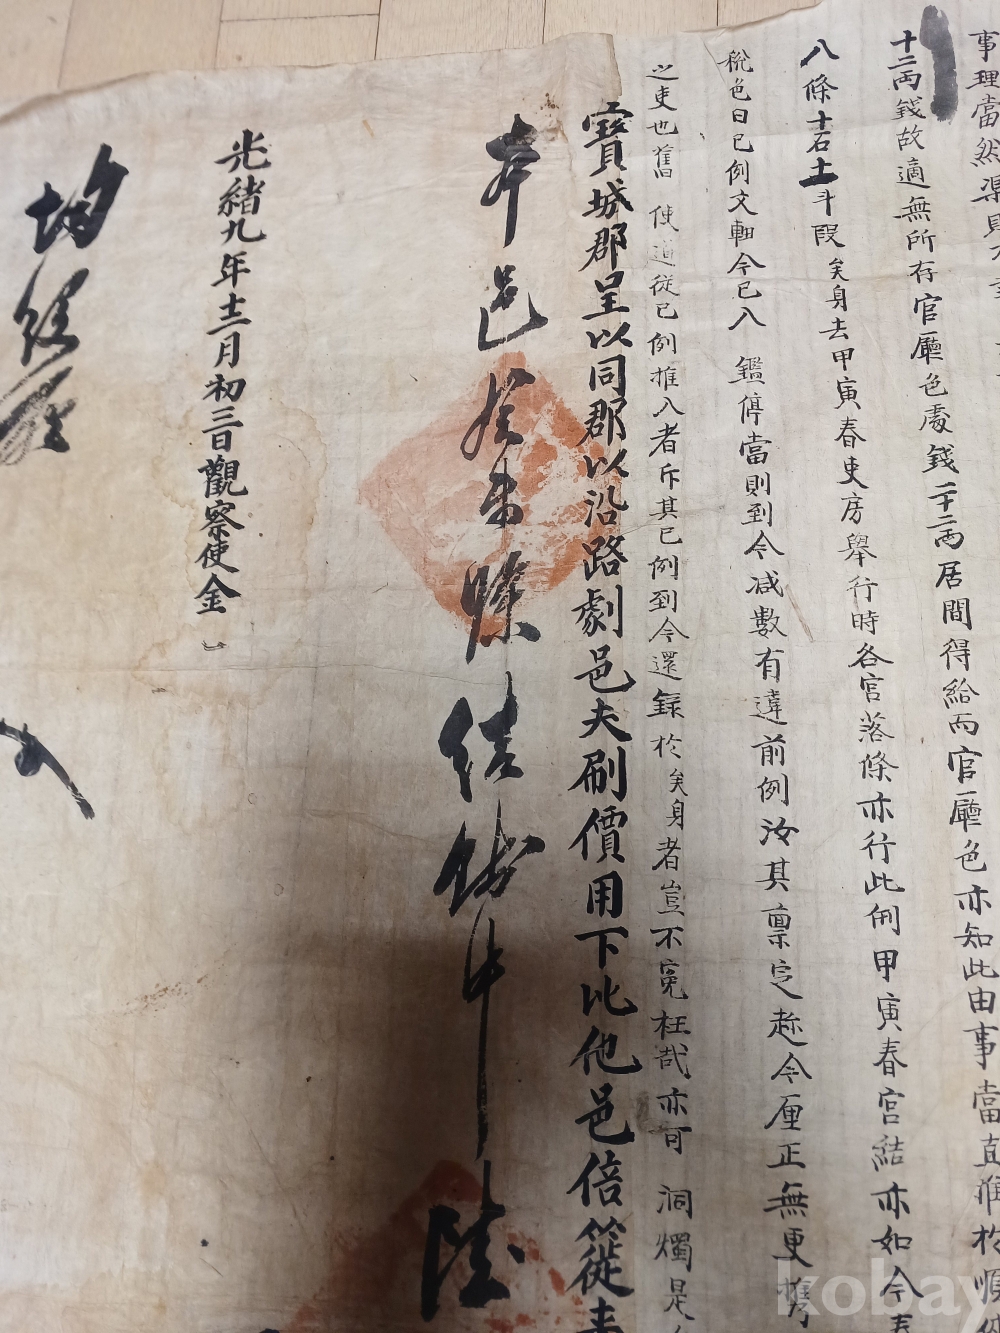 事理當然渠則
十二兩錢故適無所存官廳色處錢二十二兩居間得給而官廳色亦知此由事當直推於順
八條十石土斗段矣身去甲寅春吏房擧行時各官落條亦行此例甲寅春宮結亦如今春
稅色日已例文軸今已入 鑑停當則到今減數有違前例汝其稟定趂令厘正無更携
之吏也舊 使道從已例推入者斥其已例到今還錄於矣身者豈不寃枉哉亦可 洞燭是
寶城郡呈以同郡以沿路劇邑夫刷價用下比他邑倍蓰
本邑 條結錢中陸
光緒九年十二月初三日觀察使金
kobay